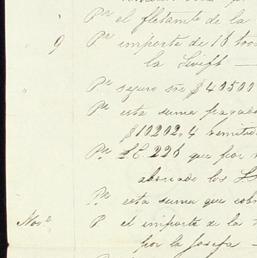 Pr el fletamto de la
9 Pr importe de 18 toc
la Swift —
Pr seguro sre $40500
Pr esta suma pagada
$10202,4 remitid
Pr LE 226 que por
abonado los
Pr esta suma que cob
Novbre P el importe de la
por la Josefa —